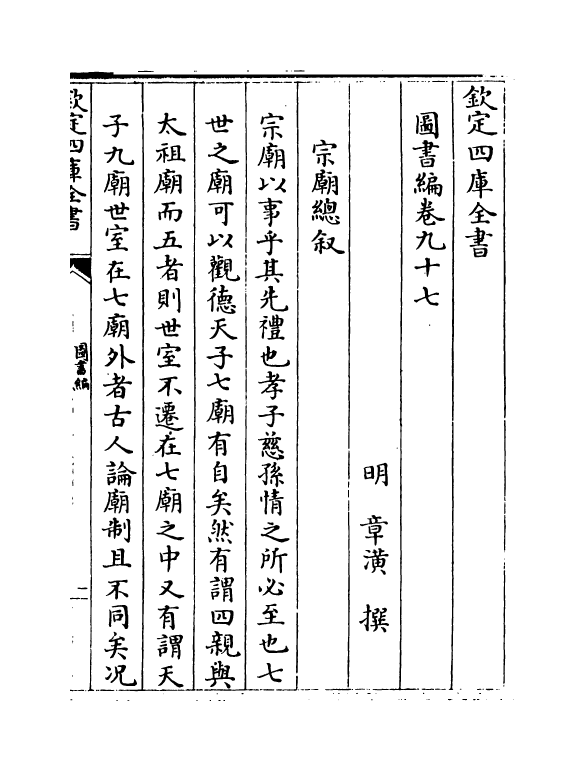 欽定四庫全書
圖書編卷九十七
明 章潢 撰
宗廟總叙
宗廟以事乎其先禮也孝子慈孫情之所必至也七
世之廟可以觀德天子七廟有自矣然有謂四親與
太祖廟而五者則世室不遷在七廟之中又有謂天
子九廟世室在七廟外者古人論廟制且不同矣况
欽定四庫全書
圖書編
二